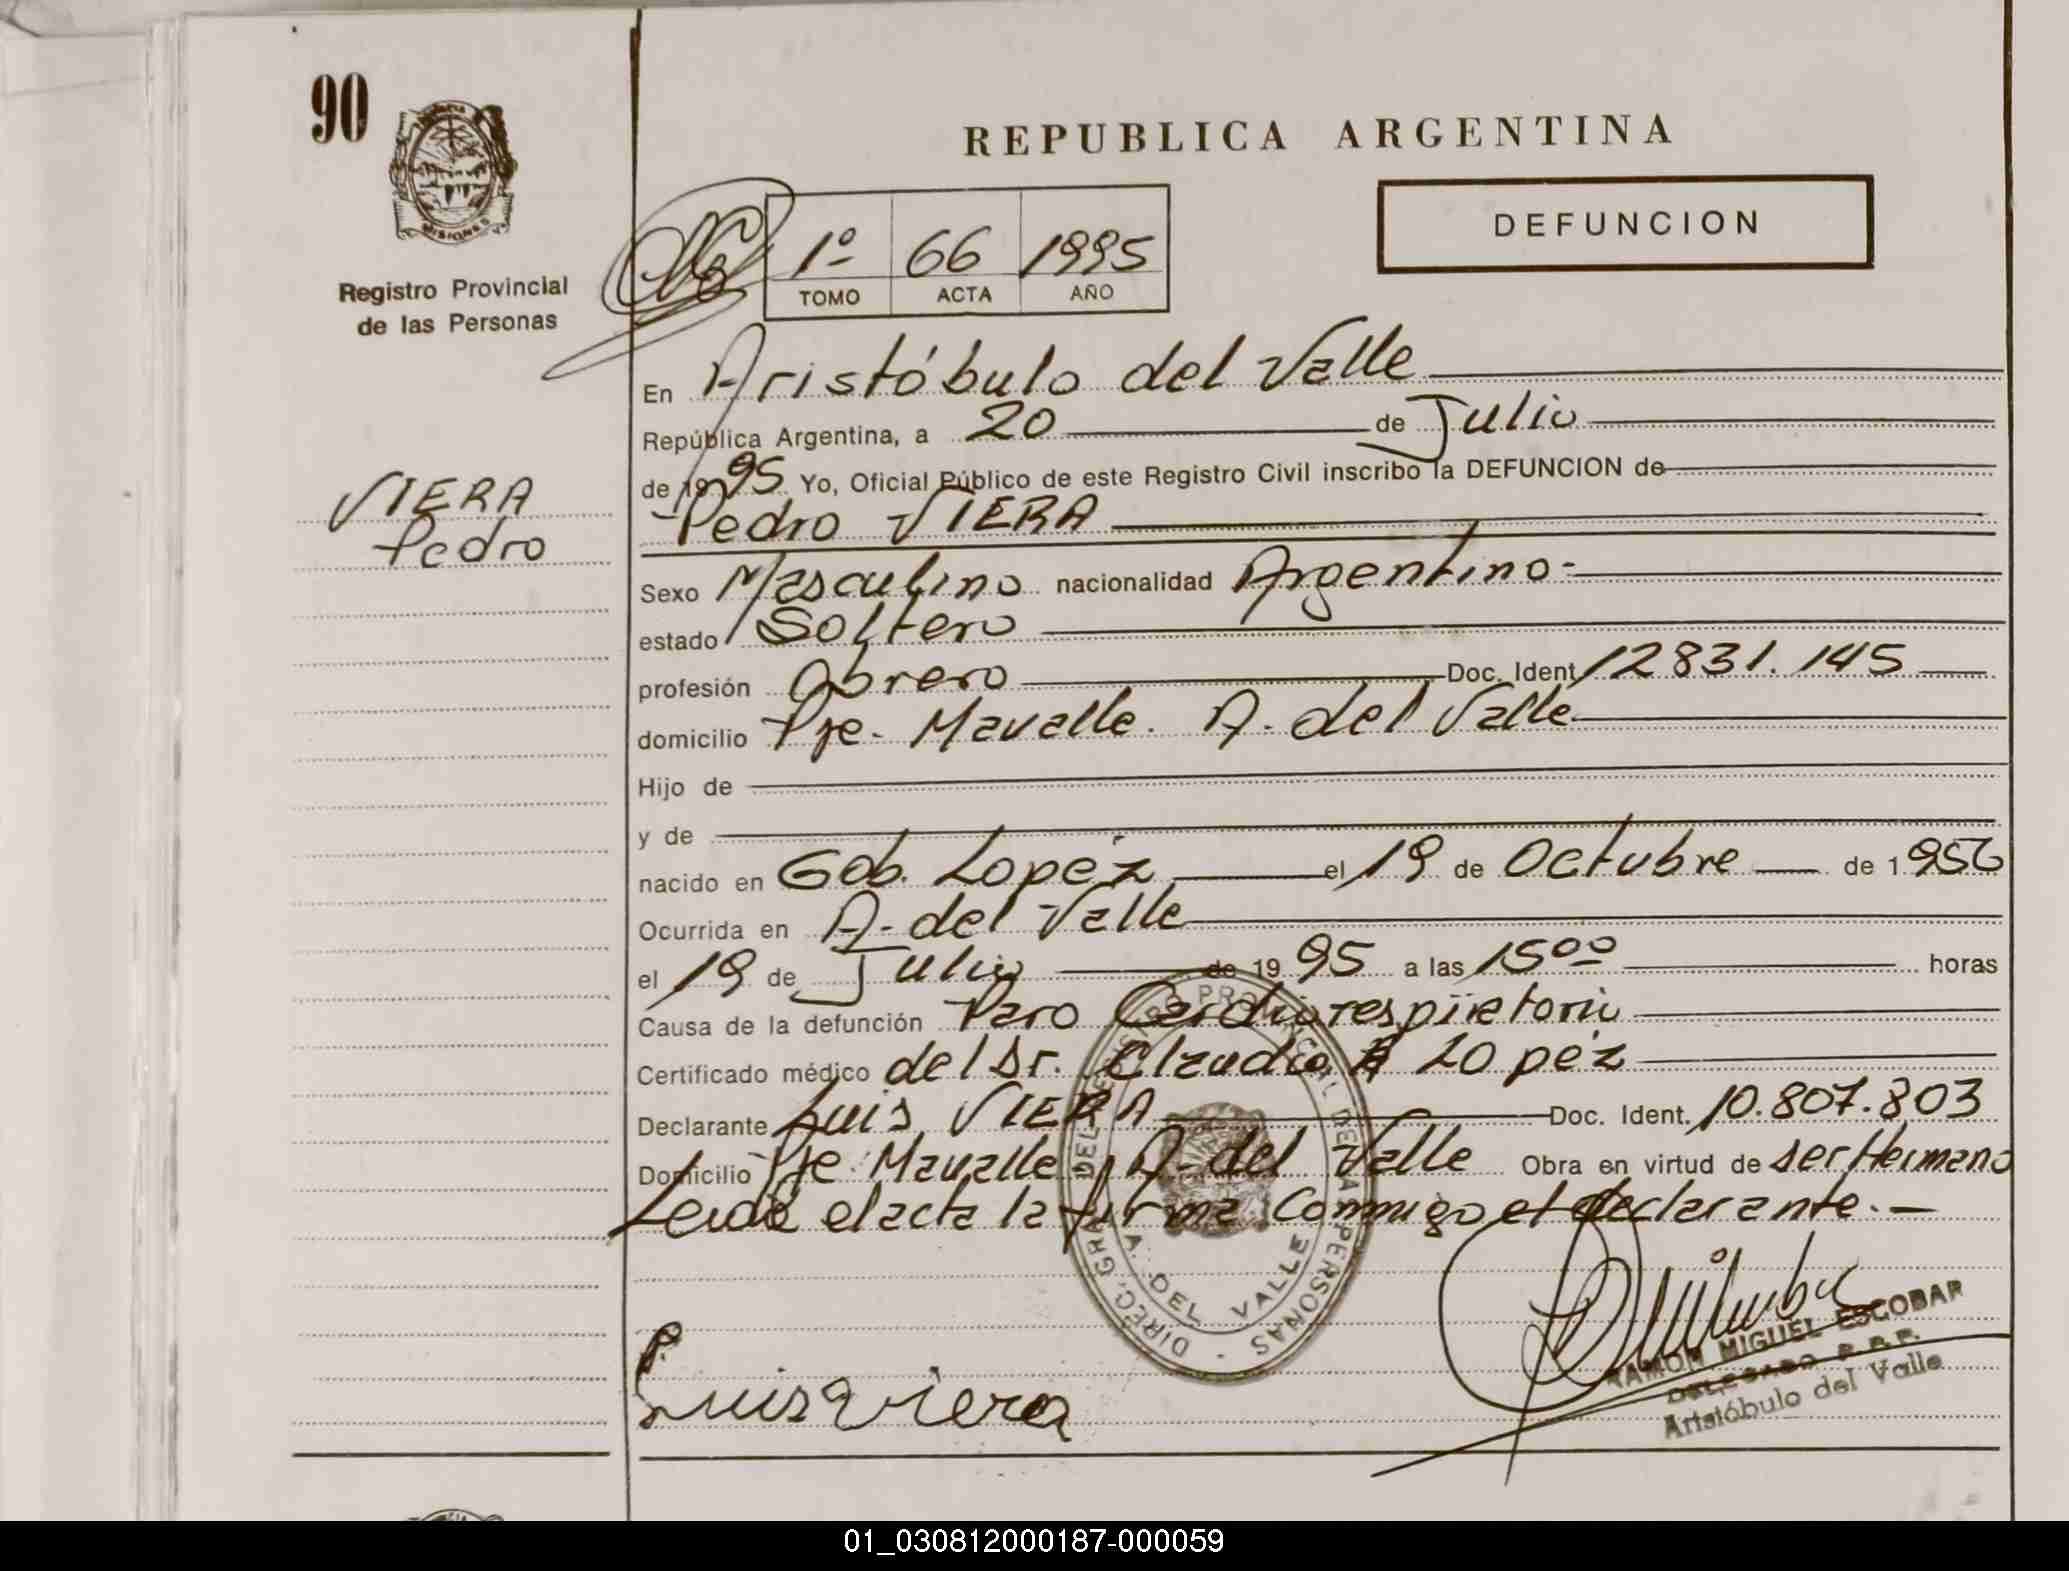 90
MISIONES
Registro Provincial
de las Personas
VIERA
Pedro
REPUBLICA ARGENTINA
DEFUNCION
1º 66 1995
TOMO ACTA AÑO
En Aristóbulo del Valle
República Argentina, a 20 de Julio
de 1995 Yo, Oficial Público de este Registro Civil inscribo la DEFUNCION de
Pedro VIERA
Sexo Masculino nacionalidad Argentino-
estado Soltero
profesión Obrero Doc. Ident. 12831.145
domicilio Pje. Mavalle. A. del Valle
Hijo de
y de
nacido en Gob. Lopéz el 19 de Octubre de 1956
Ocurrida en A. del Valle
el 19 de Julio de 1995 a las 15⁰⁰ horas
Causa de la defunción Paro Cardiorespiretorio
Certificado médico del Dr. Claudio Lopéz
Declarante Luis VIERA Doc. Ident. 10.807.803
Domicilio Pje. Mavalle, A. del Valle Obra en virtud de ser Hermano
Leida el acta la firma Conmigo el declarante.-
DIREC. GRAL. DEL REGISTRO PROVINCIAL DE LAS PERSONAS -
A. DEL VALLE
P.
Luis Viera
RAMON MIGUEL ESCOBAR
DELEGADO R.P.P.
Aristóbulo del Valle
01_030812000187-000059